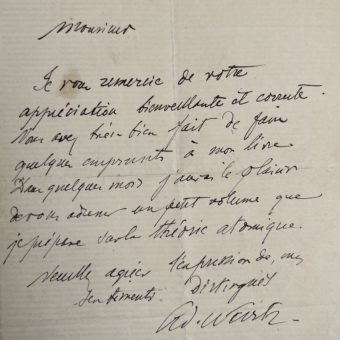 Monsieur
Je vous remercie de votre
appréciation bienveillante et
Vous avez très bien fait de faire
quelques emprunts à mon livre
Dans quelques mois j'aurai le plaisir
de vous adresser un petit volume que
je prépare sur la théorie atomique.
Veuillez agréer l'expression de mes
sentiments Distingués
Ad. Wurtz